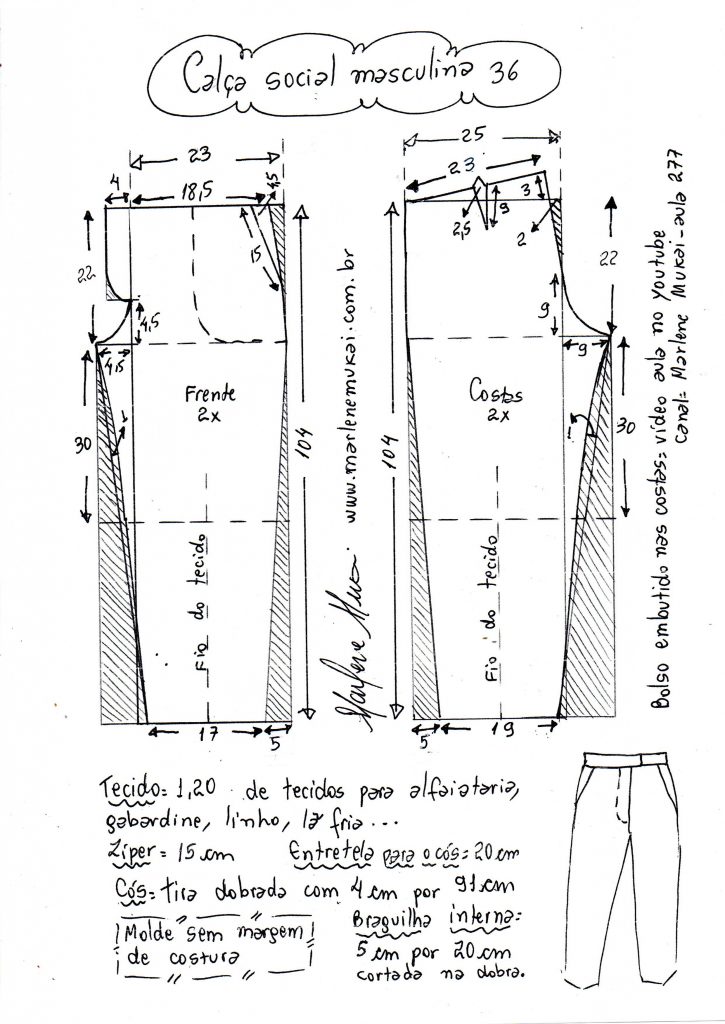 Calça social masculina 36
23
4
18,5
4,5
15
22
4,5
4,5
30
1
Frente
2x
104
Fio do tecido
17
5
www.marlenemukai.com.br
Marlene Mukai
25
23
3
9
2,5
2
22
9
9
Costas
2x
104
1
30
Fio do tecido
5
19
Bolso embutido nas costas: vídeo aula no Youtube
canal: Marlene Mukai - aula 277
Tecido= 1,20 de tecidos para alfaiataria,
gabardine, linho, lã fria...
Zíper = 15 cm
Entretela para o cós= 20 cm
Cós= tira dobrada com 4 cm por 91 cm
Molde sem margem
de costura
Braguilha interna=
5 cm por 20 cm
cortada na dobra.